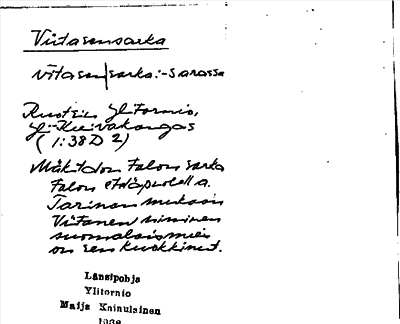 Viitasensarka
vītasen|sarka: -sarassa
Ruotsin Ylitornio,
Yli-Kuivakangas
(1:38 D 2)
Mäkitalon talon sarka
talon eteläpuolella.
Tarinan mukaan
Viitanen niminen
suomalaismies
on sen kuokkinut.
Länsipohja
Ylitornio
Maija Kainulainen
1938